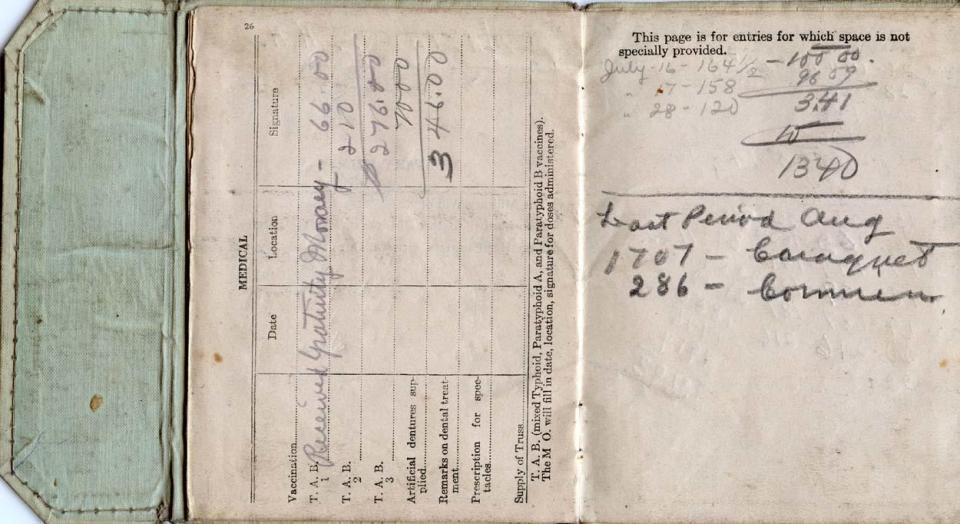 26
MEDICAL
Date Location Signature
Vaccination
T. A. B. 1 Received Gratuity Money - 66.00
T. A. B. 2 2 10
T. A. B. 3 276.00
Artificial dentures sup-
plied 70 00
Remarks on dental treat-
ment 3 46.00
Prescription for spec-
tacles
Supply of Truss
T. A. B. (mixed Typhoid, Paratyphoid A, and Paratyphoid B vaccines).
The M. O. will fill in date, location, signature for doses administered.
This page is for entries for which space is not
specially provided.
July-16-164 1/2
" 17-158
" 28-120
3.41
10
1340
Last Period Aug
1707 -
286 -